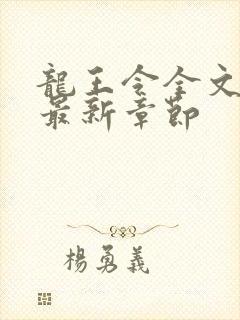 龍王令全文
最新章節
楊勇義